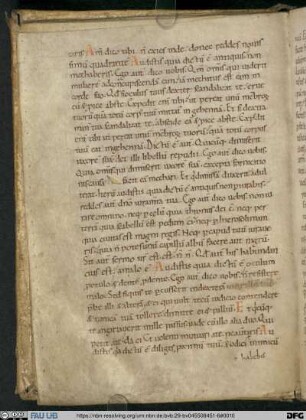 eris. Am dico tibi. n exies inde. donec reddas nouis
simu quadrante. Audistis quia dictu e antiquis. non
mechaberis. Ego aut dico uobis. Qm omis qui uiderit
muliere ad concupiscenda ea. ia mechatus est eam in
corde suo. Qd si oculus tuus dexter scandalizat te. erue
eu & pice abs te. Expedit eni tibi ut pereat unu mebroru
tuoru qua totu corpus tuu mittat in gehenna. Et si dextera
manus tua scandalizat te. abscide ea & pice abs te. Expedit
eni tibi ut pereat unu mebroru tuoru qua totu corpus
tuu eat in gehenna. Dictu e aut. Quicuq; dimiserit
uxore sua det illi libellu repudii. Ego aut dico uobis.
quia omis qui dimiserit uxore sua excepta fornicatio
nis causa facit ea mechari. Et qui dimissa duxerit adul
terat. Iteru audistis quia dictu e antiquis non periurabis.
reddes aut dno iuramta tua. Ego aut dico uobis non iu
rare omnino. neq; p celu quia thronus di e. neq; p ter
ra quia scabellu est pedum ei. neq; p hierosolimam
quia ciuitas est magni regis. Neq; p caput tuu iuraue
ris quia n potes unu capillu albu facere aut nigru.
Sit aut sermo ur est est. n n. Qd aut his habundantius
est. a malo e. Audistis quia dictu e oculum
p oculo & dente p dente. Ego aut dico uobis n resistere
malo. Sed si quis te pcusserit in dextera maxilla tua
pbe illi & altera. & ei qui uult tecu iudicio contendere
& tunica tua tollere. dimitte ei & palliu. Et quicuq;
te angariauerit mille passus uade cu illo alia duo. Qui
petit a te da ei. & uolenti mutuari a te ne auertaris. Au
distis quia dictu e diliges proximu tuu. & odies inimicu
https://nbn-resolving.org/urn:nbn:de:bvb:29-bv045508451-6#0010
FAU UB
DFG